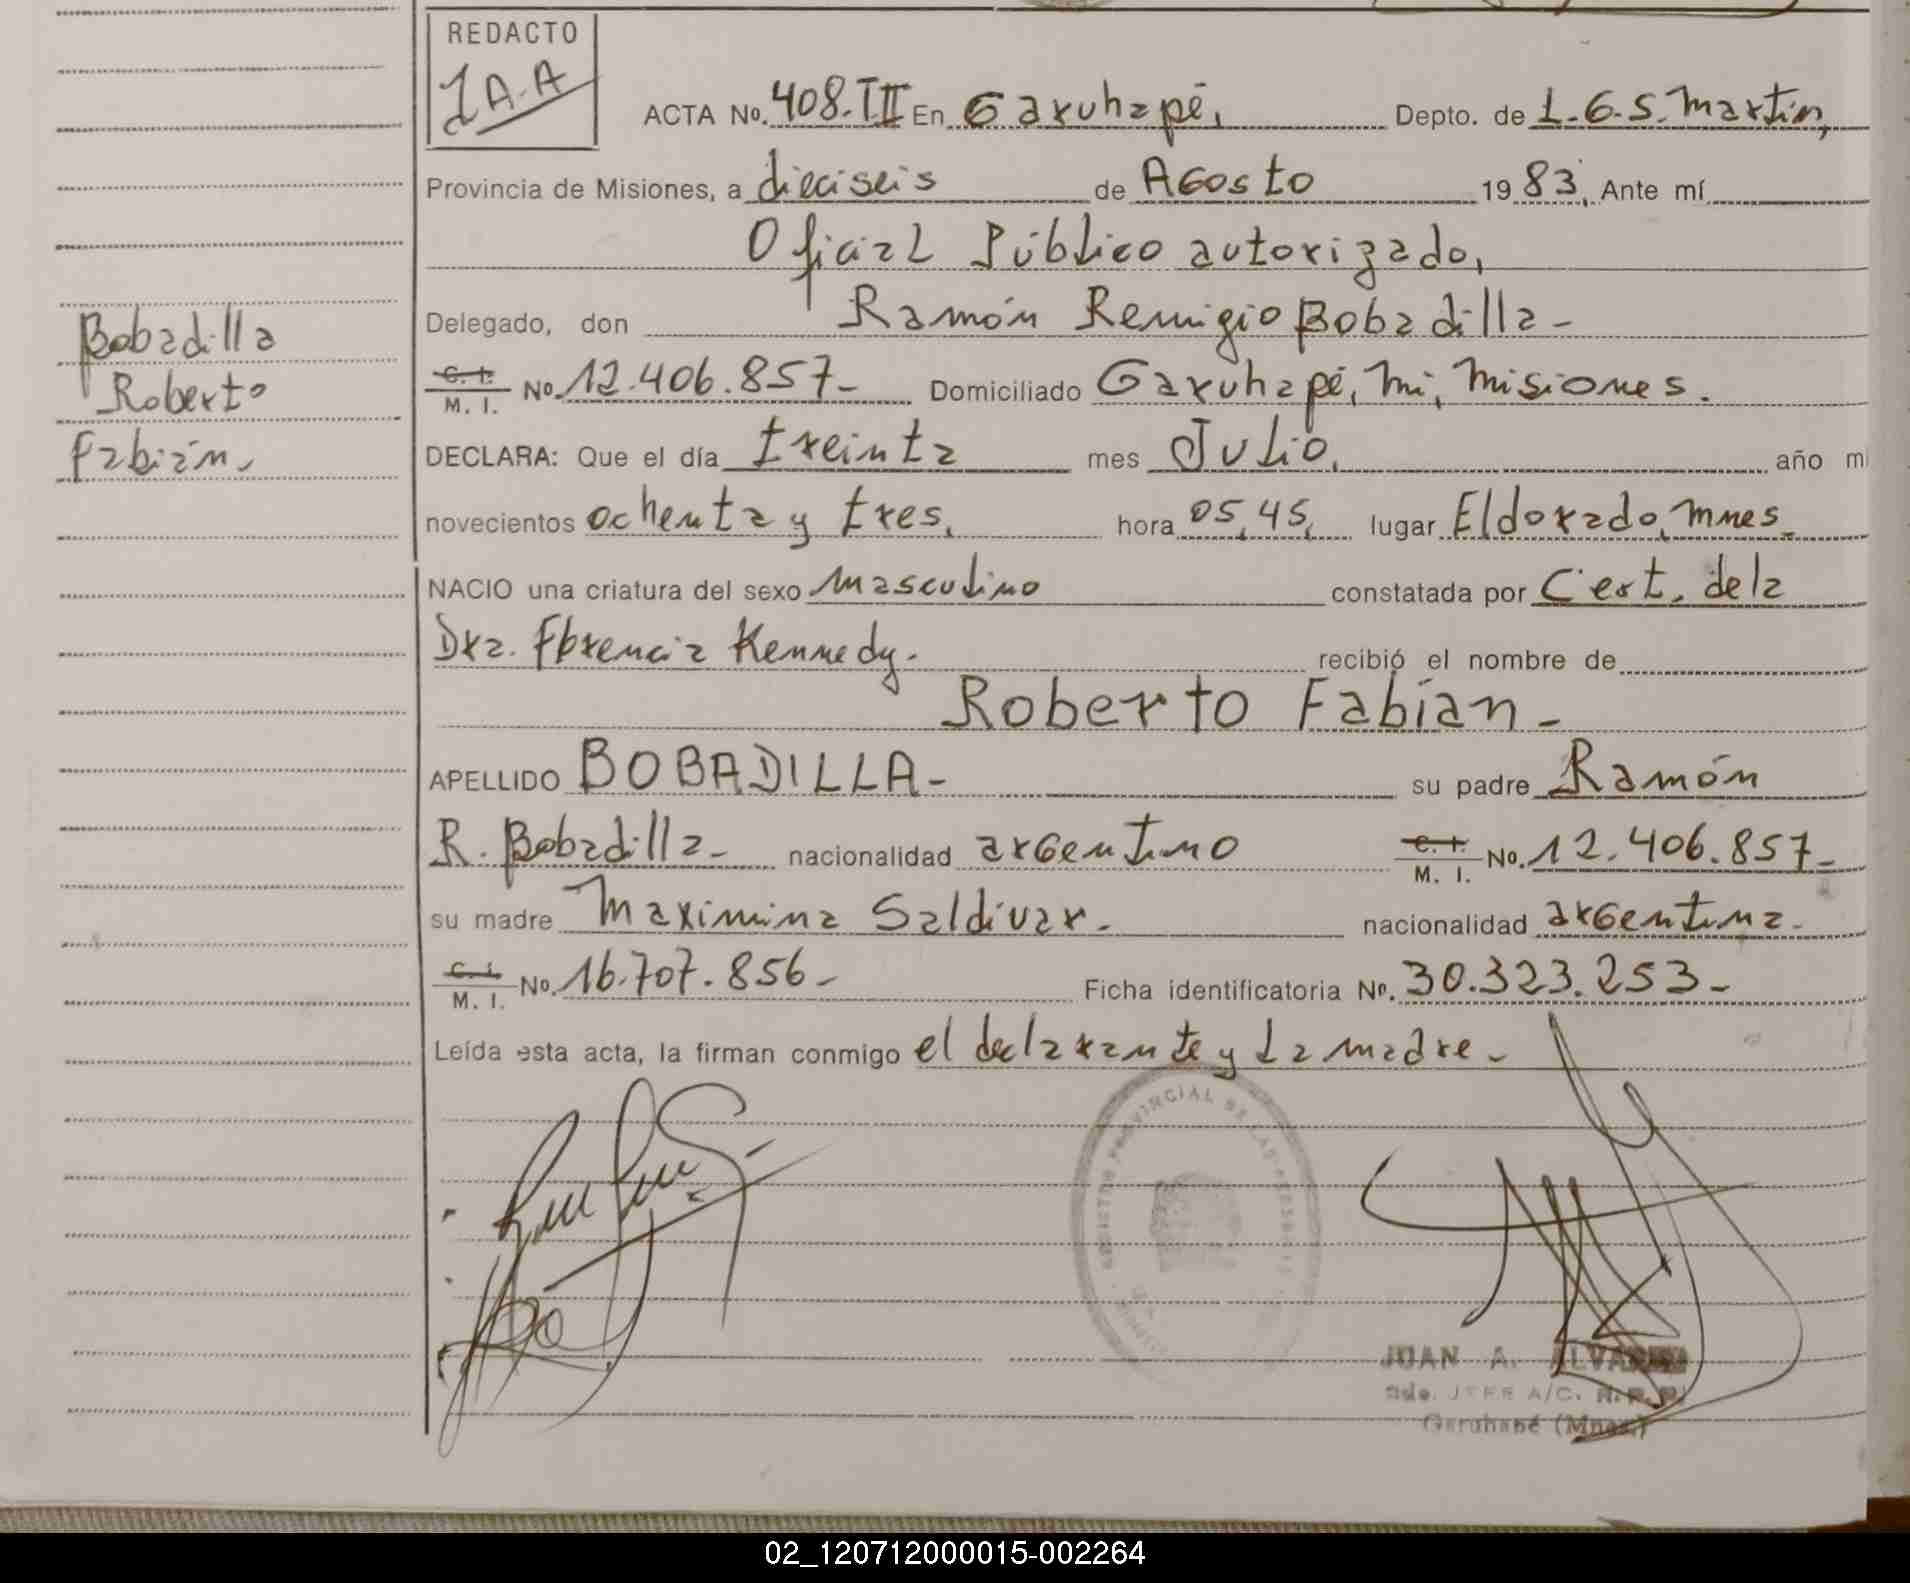 REDACTO
JA-A
ACTA No. 408.T.II En Garuhapé, Depto. de L.G.S. Martin,
Provincia de Misiones, a dieciseis de Agosto 19 83, Ante mí
Oficial Público autorizado,
Delegado, don Ramón Remigio Bobadilla-
C. I. M. I. No. 12.406.857- Domiciliado Garuhapé, Mi, Misiones.
DECLARA: Que el día treinta mes Julio, año mi
novecientos ochenta y tres, hora 05,45, lugar Eldorado, Mnes.
NACIO una criatura del sexo masculino constatada por Cert. de la
Dra. Florencia Kennedy. recibió el nombre de
Roberto Fabián-
APELLIDO BOBADILLA- su padre Ramón
R. Bobadilla- nacionalidad argentino C. I. M. I. No. 12.406.857-
su madre Maximina Saldivar. nacionalidad argentina.
C. I. M. I. No. 16.707.856- Ficha identificatoria No. 30.323.253-
Leída esta acta, la firman conmigo el declarante y La madre-
Bobadilla
Roberto
Fabián
PROVINCIAL DE LAS
JUAN A.
JEFE A/C. R.P.P.
Garuhapé (Mnes.)
02_120712000015-002264